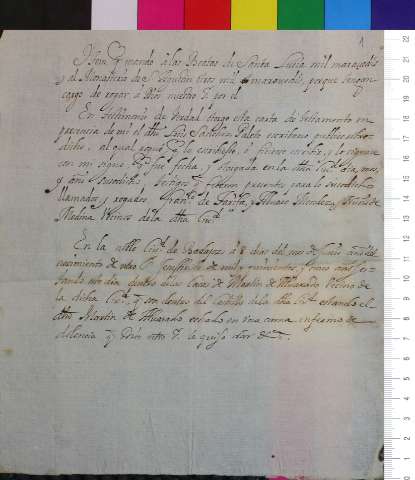 1
Iten q mando á las Beatas de Santa Lucia mil maravedis
y al Monasterio de tres mil maravedis, porque tengan
cargo de rogar á Dios nuestro Sr. por el
En testimonio de verdad otorgo esta carta de testamento en
presencia de mi el dho Luis Sanchez escribano publico
al qual rogué q la escribiese, ó ficiese escribir, y la signase
con mi signo q fue fecha y otorgada en la dha Cid. dia, mes,
y año susodichos testigos q fueron presentes para lo susodicho
llamados y rogados de Vargas, Alvaro Mendez y de
Medina Vecinos de la dha Cid.
En la noble Cid. de Badajoz á 8 dias del mes de año del
nacimiento de ntro Sr. Jesuchristo de mil y quinientos y años es-
tando un dia dentro de las Casas de Martin de Alvarado Vecino de
la dicha Cid. q son dentro del Castillo de la dha Cid. estando el
dho Martin de Alvarado echado en una cama enfermo de
dolencia q Dios ntro Sr. le quiso dar &c.